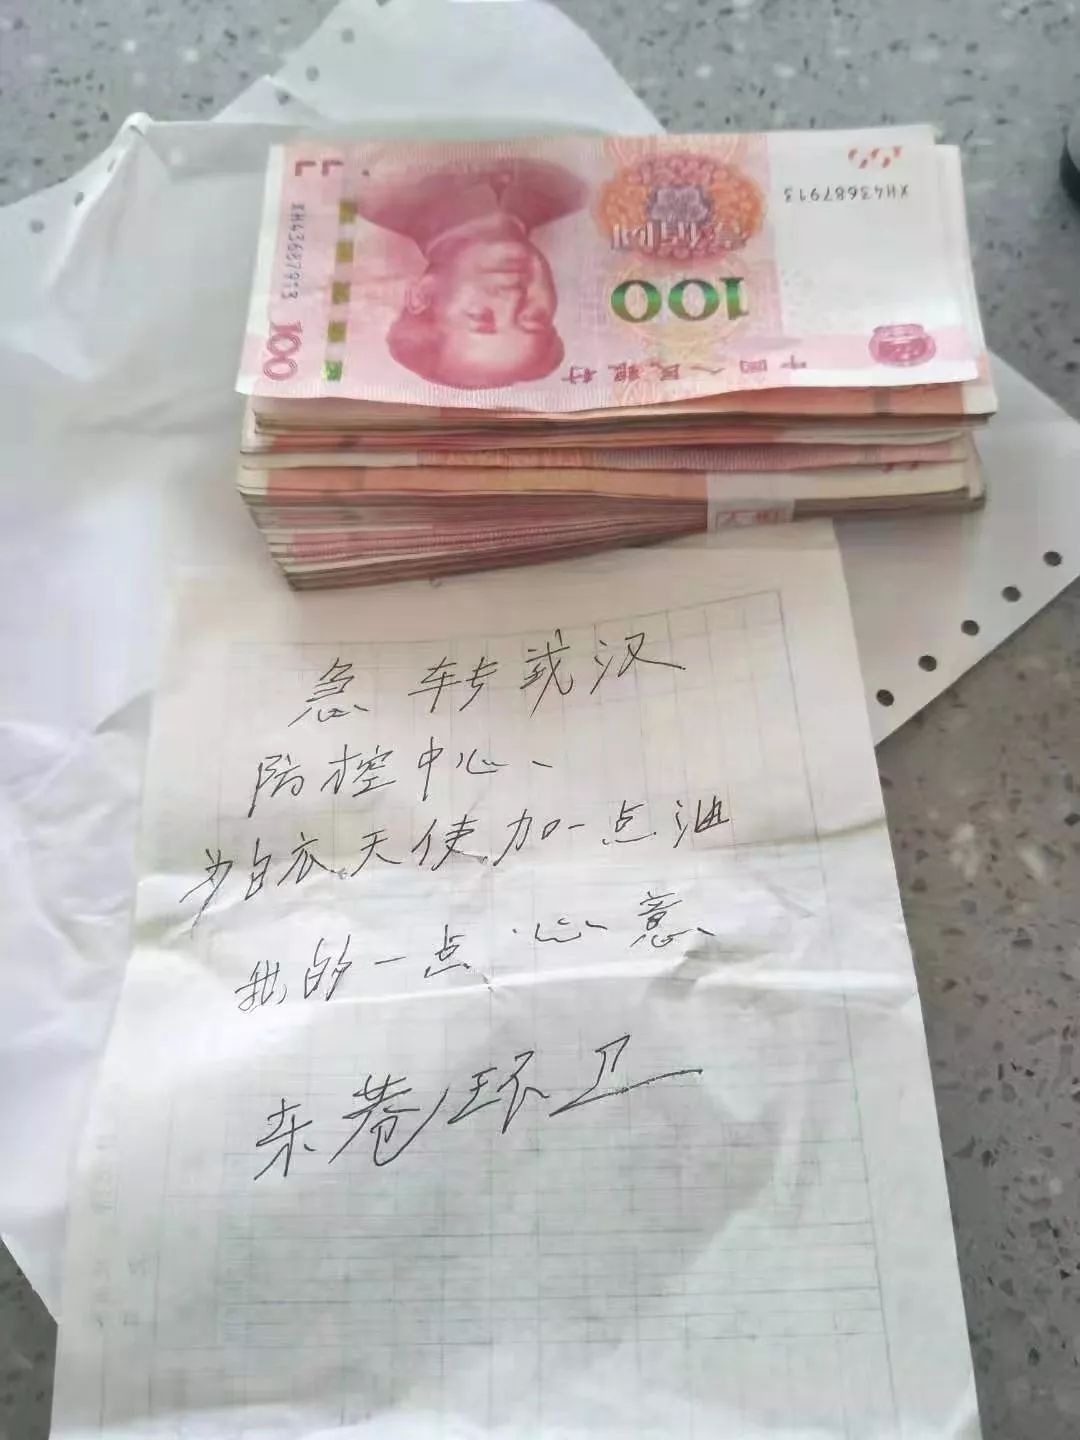 XH43687913
100
中国人民银行
壹佰圆
100
XH43687913
急转武汉
防控中心、
为白衣天使加一点油
我的一点心意、
东巷环卫